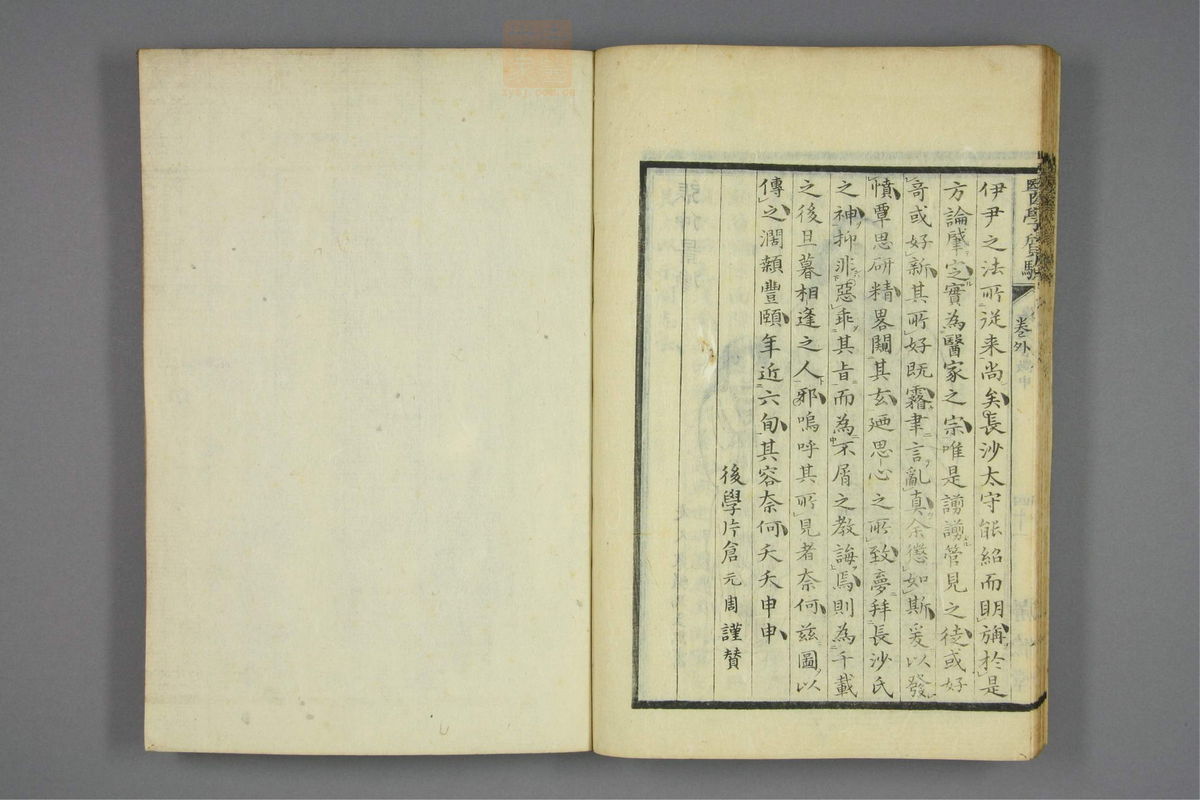 醫學質驗
卷之外
伊尹之法所從来尚矣長沙太守能紹而明旃於是
方論肇定實為醫家之宗唯是謭謭管見之徒或好
奇或好新其所好既霧聿言亂真余懲如斯爰以發
憤覃思研精畧闚其玄廼思心之所致夢拜長沙氏
之神抑非惡乖其旨而為不屑之教誨焉則為千載
之後旦暮相逢之人邪嗚呼其所見者奈何茲圖以
傳之濶顙豐頤年近六旬其容奈何夭夭申申
後學片倉元周謹贊